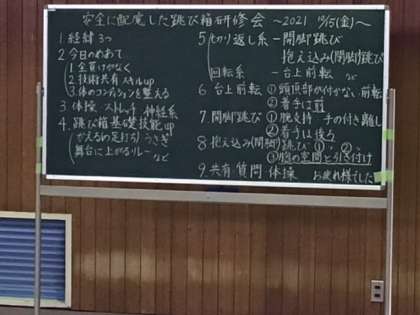 安全に配慮した跳び箱研修会 ～2021 10/15(金)～
1.経緯 3つ
2.今日のめあて
1全員けがなく
2技術共有スキルup
3体のコンディションを整える
3.体操 ストレッチ 神経系
4.跳び箱基礎技能up
(かえるの足打ち)うさぎ
舞台に上がるリレーなど
5切り返し系－開脚跳び
抱え込み(閉脚)跳び
回転系 －台上前転 など
6 台上前転 ①頭頂部が付かない前転
②着手は前
7 開脚跳び ①腕支持 手の付き離し
②着手は後ろ
8 抱え込み(閉脚)跳び ①〃 ②〃
③胸の空間と引き付け
9.共有 質問 体操 お疲れ様でした